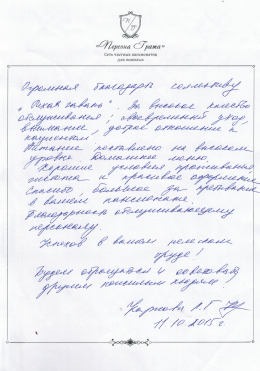 «Персона Грата»
Сеть частных пансионатов
для пожилых
Огромная благодарность коллективу
За высокое качество
обслуживания; своевременный уход,
внимание, доброе отношение к
пациентам.
Питание поставлено на высоком
уровне домашнее меню.
Хорошие условия проживания
чистота и красивое оформление
Спасибо, большое за
в вашем пансионате.
Благодарность обслуживающему
персоналу.
Успехов в вашем нелегком
труде!
Будем обращаться и
другим пожилым людям
11.10.2015 г